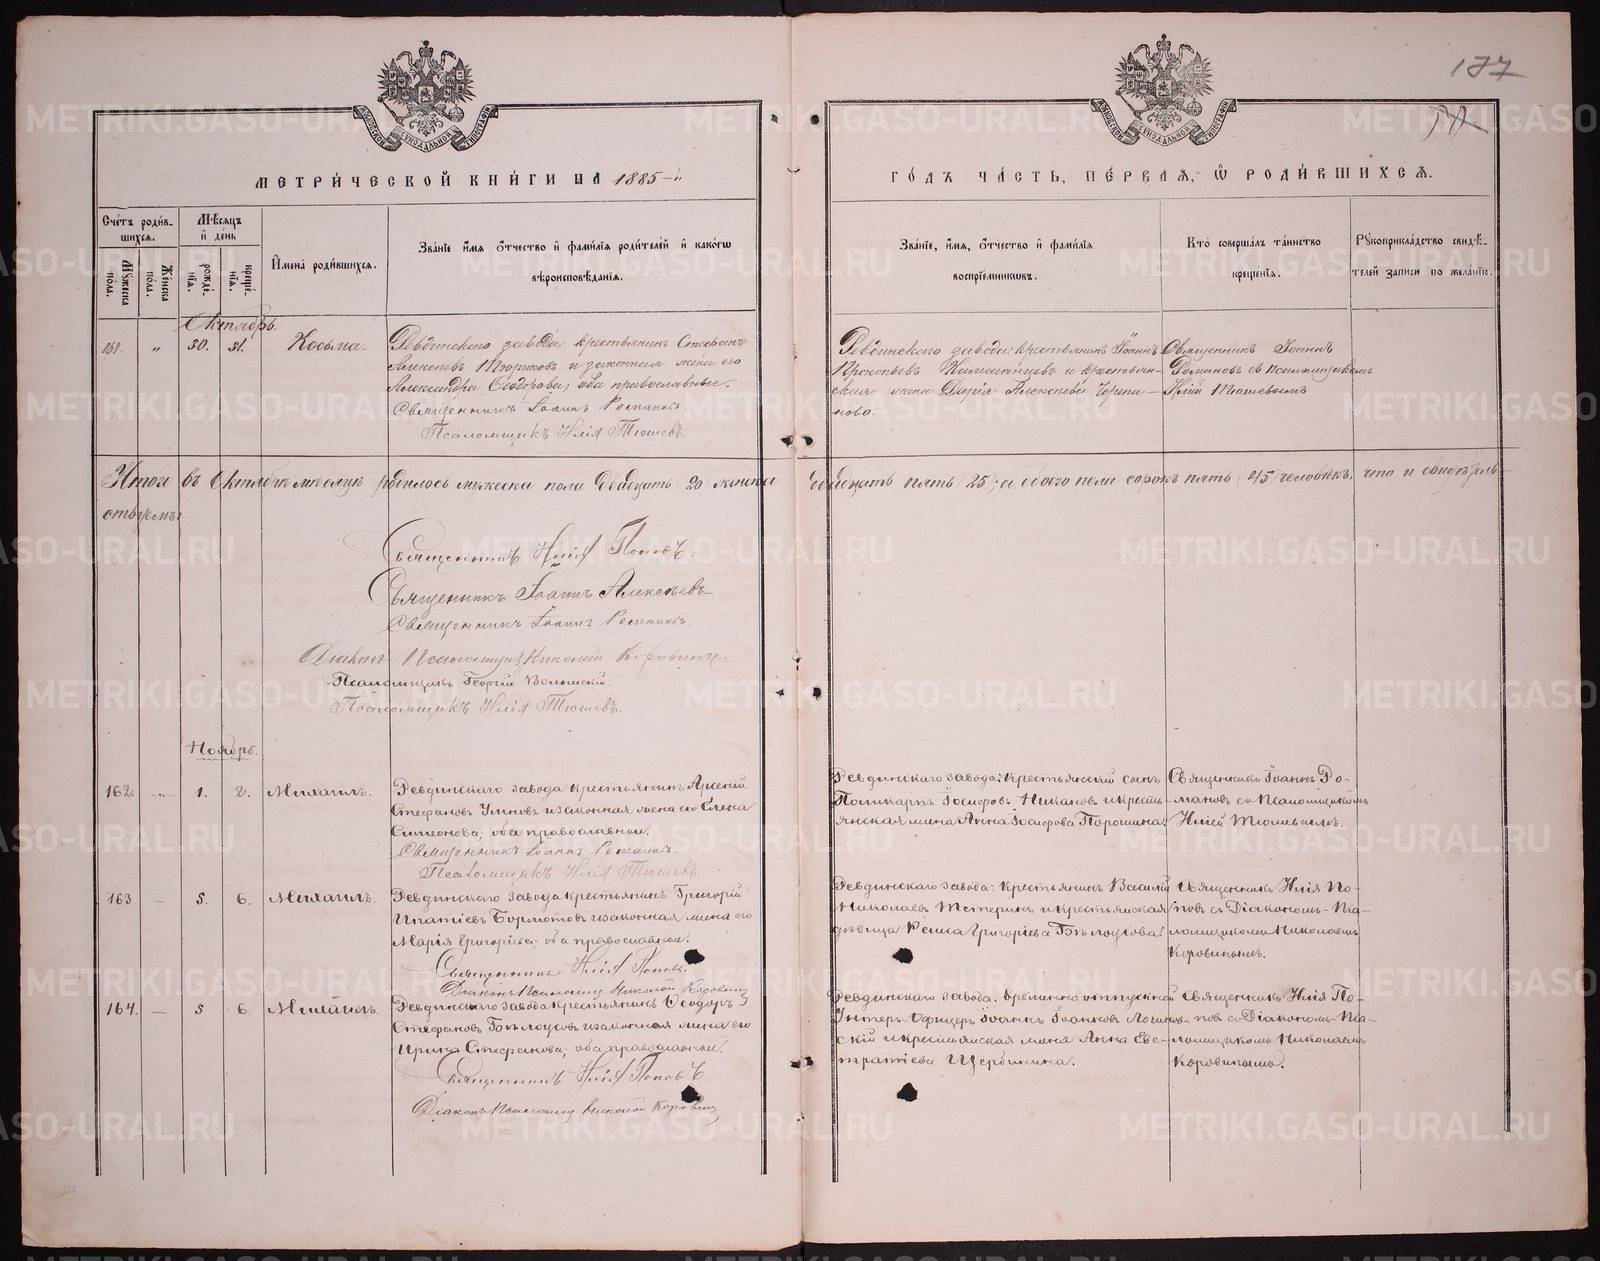 177
МЕТРИ́ЧЕСКОЙ КНИ́ГИ НА 1885-й
ГО́ДЪ ЧА́СТЬ, ПЕ́РВАЯ, Ѿ РОДИ́ВШИХСЯ.
Сче́тъ роди́в-
шихся.
Му́жеска по́ла.
Же́нска по́ла.
Мѣ́сяцъ
и҆ де́нь
рожде́-
нїѧ.
креще́-
нїѧ.
И҆мена̀ роди́вшихся.
Зва́нїе и҆́мя ѻ҆́тчество и҆ фами́лїя роди́телей и҆ како́гѡ
вѣроисповѣ́данїя.
Зва́нїе, и҆́мя, ѻ҆́тчество и҆ фами́лїя
воспрїе́мникѡвъ.
Кто̀ соверша́лъ та́инство
креще́нїя.
Рꙋкоприкла́дство свидѣ́-
телей записи по жела́нїю.
Октябрь.
" 30. 31. Косьма.
Ревдинскаго завода крестьянинъ Стефанъ
Алексѣевъ Тюриковъ и законная жена его
Александра Ѳеодорова, оба православные.
Священникъ Іоаннъ Романовъ.
Псаломщикъ Илія Тюшевъ.
Ревдинскаго завода крестьянинъ Іоаннъ
Прокопьевъ и крестьян-
ская жена Дарія Алексѣева Черепа-
нова.
Священникъ Іоаннъ
Романовъ съ Псаломщикомъ
Иліей Тюшевымъ
Итого въ Октябрѣ мѣсяцѣ родилось мужеска пола двадцать (20) женска двадцать пять (25), а обоего пола сорокъ пять (45) человѣкъ, что и свидѣтель-
ствуемъ:
Священникъ Илія Поповъ.
Священникъ Іоаннъ Алексѣевъ
Священникъ Іоаннъ Романовъ.
Діаконъ Псаломщикъ Николай Коровинъ.
Псаломщикъ Георгій
Псаломщикъ Илія Тюшевъ.
Ноябрь.
162. — 1. 2. Михаилъ.
Ревдинскаго завода крестьянинъ Арсеній
Стефановъ Умновъ и законная жена его Елена
Симеонова, оба православныи.
Священникъ Іоаннъ Романовъ.
Псаломщикъ Илія Тюшевъ.
Ревдинскаго завода: крестьянскій сынъ
Поликарпъ Іосифовъ и кресть-
янская жена Анна Іосифова Порошина.
Священникъ Іоаннъ Ро-
мановъ съ Псаломщикомъ
Иліей Тюшевымъ.
163 — 5. 6. Михаилъ.
Ревдинскаго завода крестьянинъ Григорій
Ипатіевъ Бормотовъ и законная жена его
Марія Григоріева, оба православныи.
Священникъ Илія Поповъ.
Діаконъ Псаломщ. Николай Коровинъ
Ревдинскаго завода: крестьянинъ Василій
Николаевъ Тетеринъ и крестьянская
дѣвица Григоріева
Священникъ Илія По-
повъ съ Діакономъ-Пса-
ломщикомъ Николаемъ
Коровинымъ.
164. — 5 6. Михаилъ.
Ревдинскаго завода крестьянинъ Ѳеодоръ
Стефановъ и законная жена его
Ирина Стефанова, оба православныи.
Священникъ Илія Поповъ.
Діаконъ Псаломщ. Николай Коровинъ
Ревдинскаго завода: временно отпускной
Унтеръ-Офицеръ Іоаннъ Іоанновъ Логинов-
скій и крестьянская жена Анна Евс-
тратіева Щербинина.
Священникъ Илія По-
повъ съ Діакономъ-Пса-
ломщикомъ Николаемъ
Коровинымъ.
METRIKI.GASO-URAL.RU